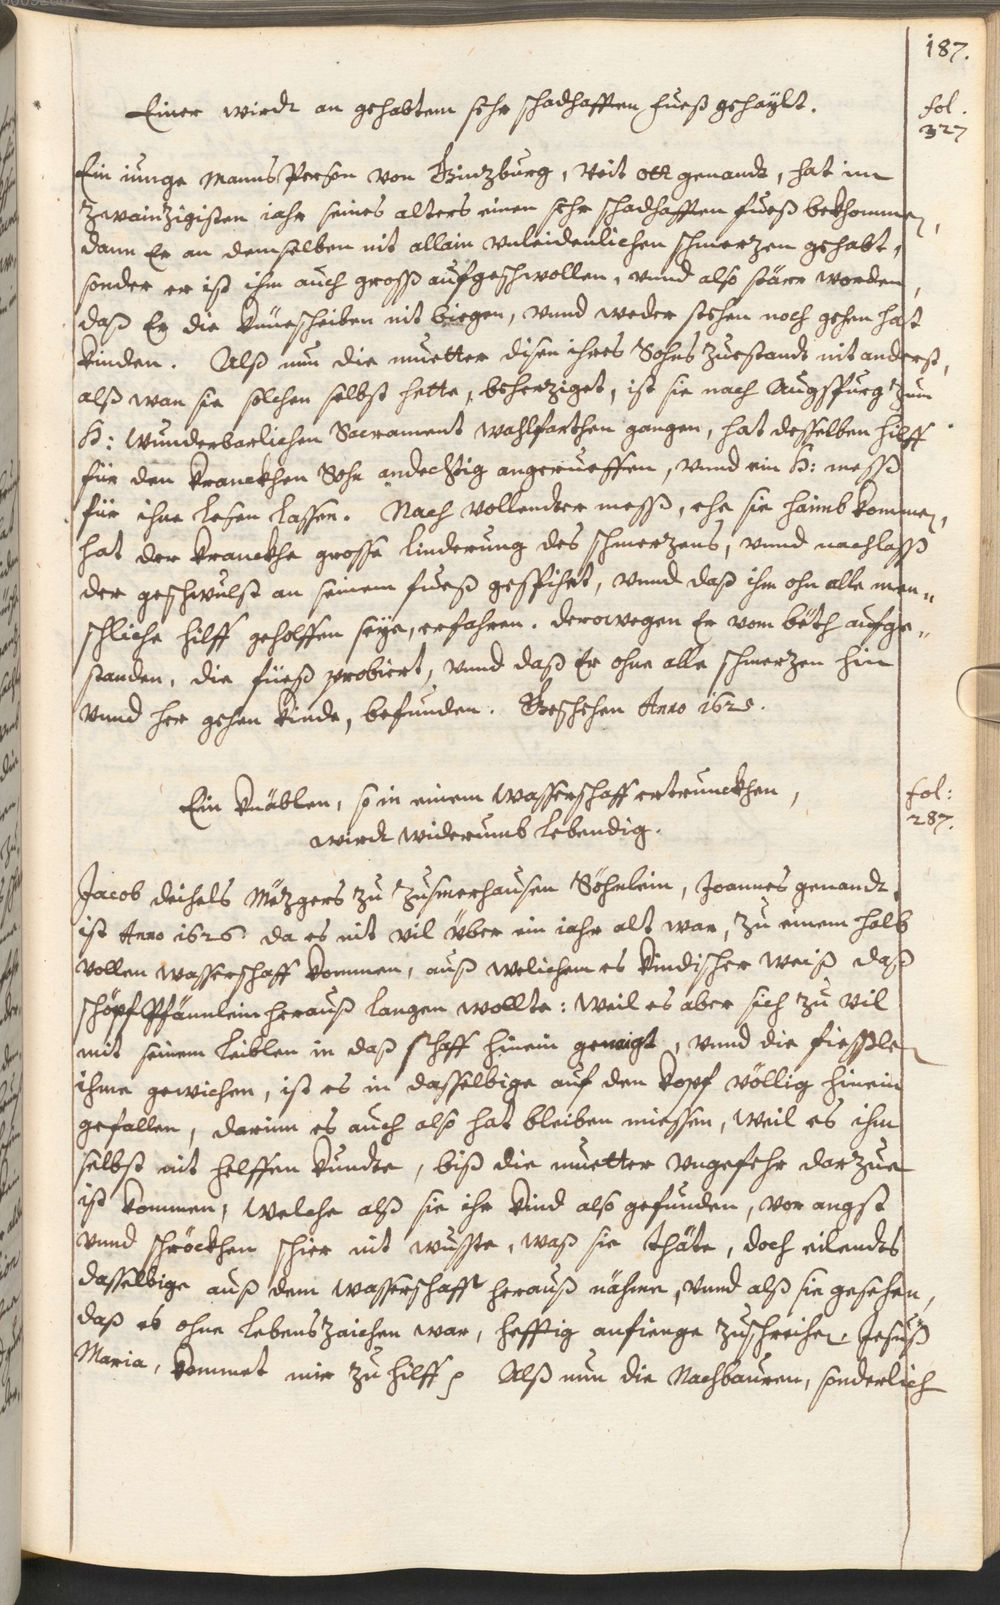 187.
Einer wirdt an gehabtem sehr schadhafften fueß gehaylt.
fol.
327
Ein iunge Manns Person von Günzburg, Veit Ott genandt, hat im
zwainzigisten iahr seines alters einen sehr schadhafften fueß bekhommen,
dann Er an demselben nit allain vnleidenlichen schmerzen gehabt,
sonder er ist ihm auch gross aufgeschwollen, vnnd also starr worden,
daß Er die knüescheiben nit biegen, vnnd weder stehen noch gehen hat
kinden. Alß nun die muetter disen ihres Sohns zuestandt nit anderst,
alß wan sie solchen selbst hette, beherziget, ist sie nach Augspurg zum
H: wunderbarlichen Sacrament wahlfarthen gangen, hat desselben hilff
für den kranckhen Sohn andechtig angerueffen, vnnd ein H: mess
für ihne lesen lassen. Nach vollendter mess, ehe sie haimb kommen,
hat der kranckhe grosse linderung des schmerzens, vnnd nachlass
der geschwulst an seinem fueß gespihrt, vnnd daß ihm ohn alle men„
schliche hilff geholffen seye, erfahren. derowegen Er vom beth aufge„
standen, die füeß probiert, vnnd daß Er ohne alle schmerzen hin
vnnd her gehen kinde, befunden. Geschehen Anno 1625.
Ein knäblen, so in einem wasserschaff ertrunckhen,
wirdt widerumb lebendig.
fol:
287.
Jacob deichels Mezgers zu Zusmerhausen Söhnlein, Joannes genandt,
ist Anno 1626. da es nit vil über ein iahr alt war, zu einem halb
vollen wasserschaff kommen, auß welichem es kindischer weiß daß
schöpfpfännlein herauß langen wollte: weil es aber sich zu vil
mit seinem leiblen in daß schaff hinein genaigt, vnnd die fiesslen
ihme gewichen, ist es in dasselbige auf den kopf völlig hinein
gefallen, darinn es auch also hat bleiben miessen, weil es ihm
selbst nit helffen kundte, biß die muetter vngefehr darzue
ist kommen, welche alß sie ihr kind also gefunden, vor angst
vnnd schröckhen schier nit wusste, waß sie thäte, doch eilendts
dasselbige auß dem wasserschafft herauß nähme, vnnd alß sie gesehen,
daß es ohne lebenszaichen war, hefftig anfienge zuschreihen, Jesuß
Maria, kommet mir zu hilff. Alß nun die Nachbauren, sonderlich